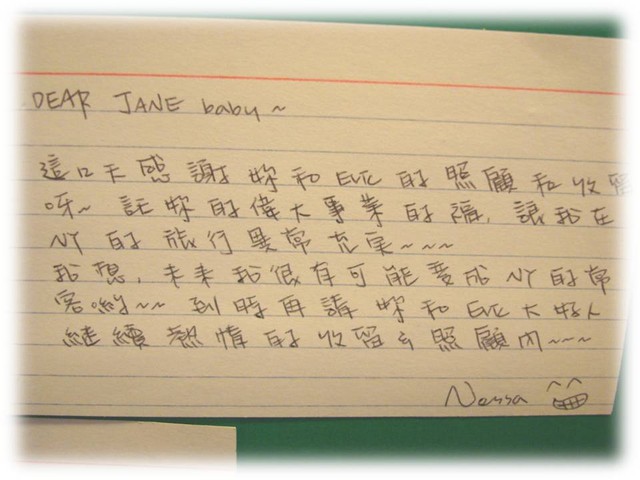 DEAR JANE baby~
這几天感謝妳和ErIC的照顧和收留
呀~ 託妳的偉大事業的福, 讓我在
NY的旅行異常充実~~~
我想, 未来我很有可能變成NY的常
客喲~~ 到時再請妳和ErIC大好人
継續熱情的收留&照顧內~~~
Nessa